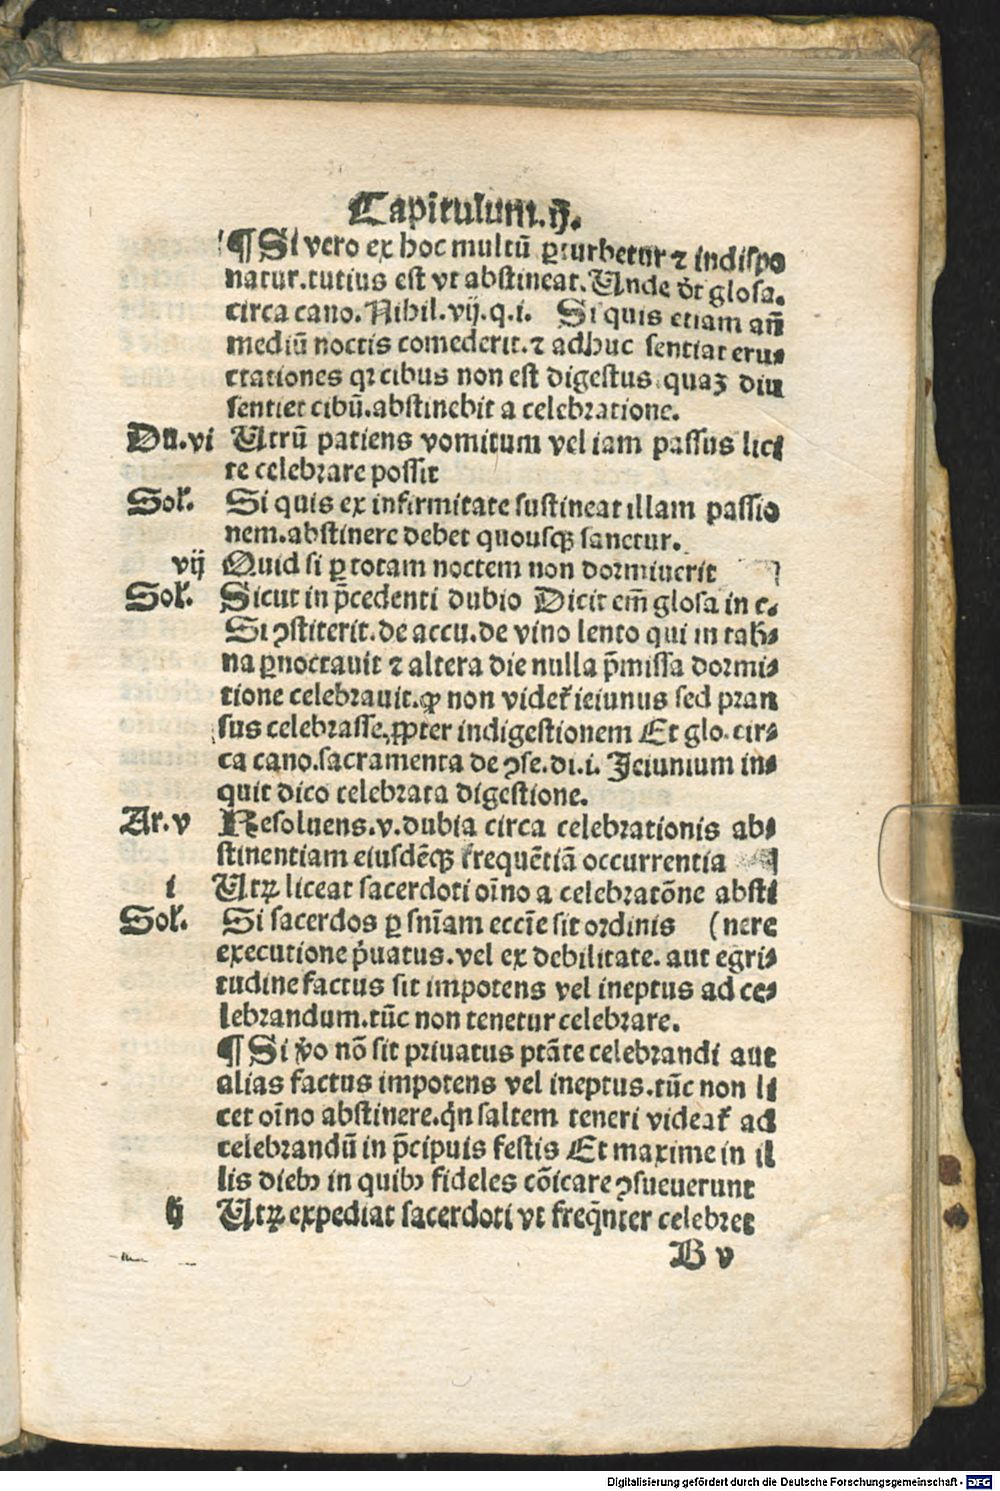 Capitulum.ij.
¶ Si vero ex hoc multū ꝑturbetur ⁊ indispo
natur.tutius est vt abstineat.Unde dr̄ glosa.
circa cano.Nihil.vij.q.i. Si quis etiam añ
mediū noctis comederit.⁊ adhuc sentiat eru⸗
ctationes qꝛ cibus non est digestus quaꝫ diu
sentiet cibū.abstinebit a celebꝛatione.
Du.vi Utrū patiens vomitum vel iam passus lici
te celebꝛare possit
Solꝰ. Si quis ex infirmitate sustineat illam passio
nem.abstinere debet quousqꝫ sanetur.
vij Quid si ꝑ totam noctem non dormiuerit
Solꝰ. Sicut in p̄cedenti dubio Dicit em̄ glosa in c.
Si ꝯstiterit.de accu.de vino lento qui in tabꝰ⸗
na ꝑnoctauit ⁊ altera die nulla p̄missa dormi⸗
tione celebꝛauit.ꝙ non videtꝰ ieiunus sed pꝛan
sus celebꝛasse.ꝓpter indigestionem Et glo.cir⸗
ca cano.sacramenta de ꝯse.di.i. Jeiunium in⸗
quit dico celebꝛata digestione.
Ar.v Resoluens.v.dubia circa celebꝛationis ab⸗
stinentiam eiusdēqꝫ frequētiā occurrentia
i Utꝝ liceat sacerdoti oīno a celebꝛatōne absti
Solꝰ. Si sacerdos ꝑ snīam eccīe sit oꝛdinis (nere
executione pͥuatus.vel ex debilitate.aut egri⸗
tudine factus sit impotens vel ineptus ad ce⸗
lebꝛandum.tūc non tenetur celebꝛare.
¶ Si v̄o nō sit pꝛiuatus ptāte celebꝛandi aut
alias factus impotens vel ineptus.tūc non li
cet oīno abstinere.qͥn saltem teneri videatꝰ ad
celebꝛandū in p̄cipuis festis Et maxime in il
lis diebꝰ in quibꝰ fideles cōicare ꝯsueuerunt
ij Utꝝ expediat sacerdoti vt freq̄nter celebꝛet
B v
Digitalisierung gefördert durch die Deutsche Forschungsgemeinschaft - DFG